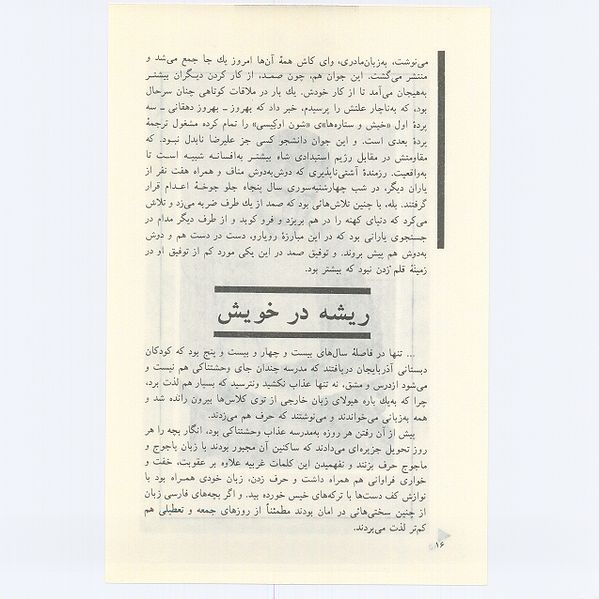 می‌نوشت، به‌زبان‌مادری، وای کاش همهٔ آن‌ها امروز یك جا جمع می‌شد و
منتشر می‌گشت. این جوان هم، چون صمد، از کار کردن دیگران بیشتر
به‌هیجان می‌آمد تا از کار خودش. یك بار در ملاقات کوتاهی چنان سرحال
بود، که به‌ناچار علتش را پرسیدم، خبر داد که بهروز ــ بهروز دهقانی ــ سه
پردهٔ اول «خیش و ستاره‌ها»ی «شون اوکیسی» را تمام کرده مشغول ترجمهٔ
پردهٔ بعدی است. و این جوان دانشجو کسی جز علیرضا نابدل نبود. که
مقاومتش در مقابل رژیم استبدادی شاه بیشتر به‌افسانه شبیه است تا
به‌واقعیت. رزمندهٔ آشتی‌ناپذیری که دوش‌به‌دوش مناف و همراه هفت نفر از
یاران دیگر، در شب چهارشنبه‌سوری سال پنجاه جلو جوخهٔ اعدام قرار
گرفتند. بله، با چنین تلاش‌هائی بود که صمد از یك طرف ضربه می‌زد و تلاش
می‌کرد که دنیای کهنه را در هم بریزد و فرو کوبد و از طرف دیگر مدام در
جستجوی یارانی بود که در این مبارزهٔ رویارو، دست در دست هم و دوش
به‌دوش هم پیش بروند. و توفیق صمد در این یکی مورد کم از توفیق او در
زمینهٔ قلم زدن نبود که بیشتر بود.
ریشه در خویش
... تنها در فاصلهٔ سال‌های بیست و چهار و بیست و پنج بود که کودکان
دبستانی آذربایجان دریافتند که مدرسه چندان جای وحشتناکی هم نیست و
می‌شود ازدرس و مشق، نه تنها عذاب نکشید ونترسید که بسیار هم لذت برد،
چرا که به‌یك باره هیولای زبان خارجی از توی کلاس‌ها بیرون رانده شد و
همه به‌زبانی می‌خواندند و می‌نوشتند که حرف هم می‌زدند.
پیش از آن رفتن هر روزه به‌مدرسه عذاب وحشتناکی بود، انگار بچه را هر
روز تحویل جزیره‌ای می‌دادند که ساکنین آن مجبور بودند با زبان یاجوج و
ماجوج حرف بزنند و نفهمیدن این کلمات غریبه علاوه بر عقوبت، خفت و
خواری فراوانی هم همراه داشت و حرف زدن، زبان خودی همراه بود با
نوازش کف دست‌ها با ترکه‌های خیس خورده بید. و اگر بچه‌های فارسی زبان
از چنین سختی‌هائی در امان بودند مطمئناً از روزهای جمعه و تعطیلی هم
کم‌تر لذت می‌بردند.
۱۶